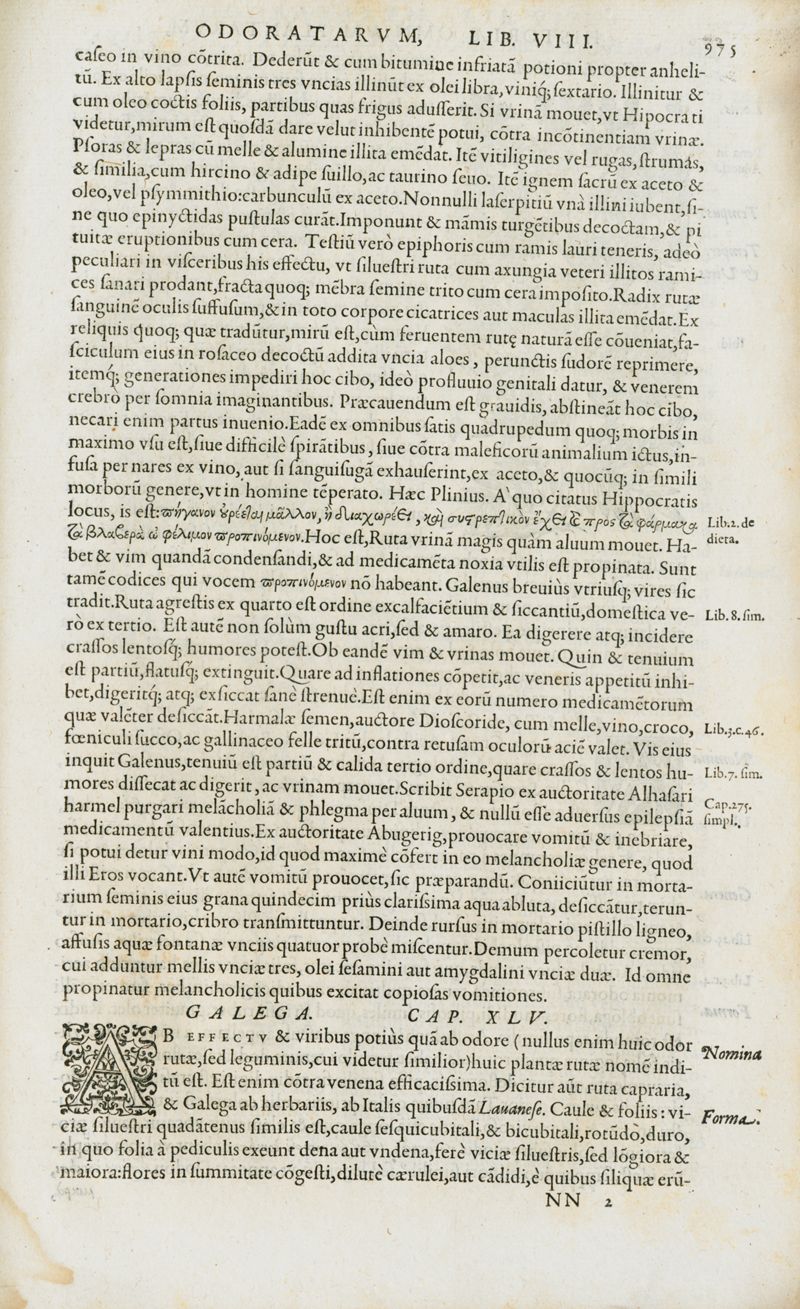 ODORATARVM, LIB. VIII. 975
caſeo in vino cõtrita. Dederũt & cum bitumine infriatã potioni propter anheli-
tũ. Ex alto lapſis ſeminis tres vncias illinũt ex olei libra, viniq; ſextario. Illinitur &
cum oleo coctis foliis, partibus quas frigus aduſſerit. Si vrinã mouet, vt Hipocrati
videtur, mirum eſt quoſdã dare velut inhibentẽ potui, cõtra incõtinentiam vrinæ.
Pſoras & lepras cũ melle & alumine illita emẽdat. Itẽ vitiligines vel rugas, ſtrumás,
& ſimilia, cum hircino & adipe ſuillo, ac taurino ſeuo. Itẽ ignem ſacrũ ex aceto &
oleo, vel pſymmithio: carbunculũ ex aceto. Nonnulli laſerpitiũ vnà illini iubent, ſi-
ne quo epinyctidas puſtulas curãt. Imponunt & mãmis turgẽtibus decoctam, & pi
tuitæ eruptionibus cum cera. Teſtiũ verò epiphoris cum ramis lauri teneris, adeò
peculiari in viſceribus his effectu, vt ſilueſtri ruta cum axungia veteri illitos rami-
ces ſanari prodant, fracta quoq; mẽbra ſemine trito cum cera impoſito. Radix rutæ
ſanguinẽ oculis ſuffuſum, & in toto corpore cicatrices aut maculas illita emẽdat. Ex
reliquis quoq; quæ tradũtur, mirũ eſt, cùm feruentem rutę naturã eſſe cõueniat, fa-
ſciculum eius in roſaceo decoctũ addita vncia aloes, perunctis ſudorẽ reprimere,
itemq; generationes impediri hoc cibo, ideò profluuio genitali datur, & venerem
crebrò per ſomnia imaginantibus. Præcauendum eſt grauidis, abſtineãt hoc cibo,
necari enim partus inuenio. Eadẽ ex omnibus ſatis quadrupedum quoq; morbis in
maximo vſu eſt, ſiue difficilè ſpirãtibus, ſiue cõtra maleficorũ animalium ictus, in-
fuſa per nares ex vino, aut ſi ſanguiſugã exhauſerint, ex aceto, & quocũq; in ſimili
morborũ genere, vt in homine tẽperato. Hæc Plinius. A' quo citatus Hippocratis
locus, is eſt: πήγανον ὀρέεται μᾶλλον, ἢ διαχωρέει, καὶ συστρεπτικὸν ἔχει τὶ πρὸς τὰ φάρμακα
τὰ βλαβερὰ ὠφέλιμον προπινόμενον. Hoc eſt, Ruta vrinã magis quàm aluum mouet. Ha-
bet & vim quandã condenſandi, & ad medicamẽta noxia vtilis eſt propinata. Sunt
tamẽ codices qui vocem προπινόμενον nõ habeant. Galenus breuiùs vtriuſq; vires ſic
tradit. Ruta agreſtis ex quarto eſt ordine excalfaciẽtium & ſiccantiũ, domeſtica ve-
rò ex tertio. Eſt autẽ non ſolùm guſtu acri, ſed & amaro. Ea digerere atq; incidere
craſſos lentoſq; humores poteſt. Ob eandẽ vim & vrinas mouet. Quin & tenuium
eſt partiũ, flatuſq; extinguit. Quare ad inflationes cõpetit, ac veneris appetitũ inhi-
bet, digeritq; atq; exſiccat ſanè ſtrenuè. Eſt enim ex eorũ numero medicamẽtorum
quæ valẽter deſiccãt. Harmalæ ſemen, auctore Dioſcoride, cum melle, vino, croco,
fœniculi ſucco, ac gallinaceo felle tritũ, contra retuſam oculorũ aciẽ valet. Vis eius
inquit Galenus, tenuiũ eſt partiũ & calida tertio ordine, quare craſſos & lentos hu-
mores diſſecat ac digerit, ac vrinam mouet. Scribit Serapio ex auctoritate Alhaſari
harmel purgari melãcholiã & phlegma per aluum, & nullũ eſſe aduerſus epilepſiã
medicamentũ valentius. Ex auctoritate Abugerig, prouocare vomitũ & inebriare,
ſi potui detur vini modo, id quod maximè cõfert in eo melancholiæ genere, quod
illi Eros vocant. Vt autẽ vomitũ prouocet, ſic præparandũ. Coniiciũtur in morta-
rium ſeminis eius grana quindecim priùs clariſsima aqua abluta, deſiccãtur, terun-
tur in mortario, cribro tranſmittuntur. Deinde rurſus in mortario piſtillo ligneo,
affuſis aquæ fontanæ vnciis quatuor probè miſcentur. Demum percoletur cremor,
cui adduntur mellis vnciæ tres, olei ſeſamini aut amygdalini vnciæ duæ. Id omne
propinatur melancholicis quibus excitat copioſas vomitiones.
Lib. 2. de
dieta.
Lib. 8. ſim.
Lib. 3. c. 46.
Lib. 7. ſim.
Cap. 275.
ſimpl.
GALEGA. CAP. XLV.
AB EFFECTV & viribus potiùs quã ab odore (nullus enim huic odor
rutæ, ſed leguminis, cui videtur ſimilior) huic plantæ rutæ nomẽ indi-
tũ eſt. Eſt enim cõtra venena efficaciſsima. Dicitur aũt ruta capraria,
& Galega ab herbariis, ab Italis quibuſdã Lauaneſe. Caule & foliis: vi-
ciæ ſilueſtri quadãtenus ſimilis eſt, caule ſeſquicubitali, & bicubitali, rotũdo, duro,
in quo folia à pediculis exeunt dena aut vndena, ferè viciæ ſilueſtris, ſed lõgiora &
maiora: flores in ſummitate cõgeſti, dilutè cærulei, aut cãdidi, è quibus ſiliquæ erũ-
Nomina
Forma.
NN 2